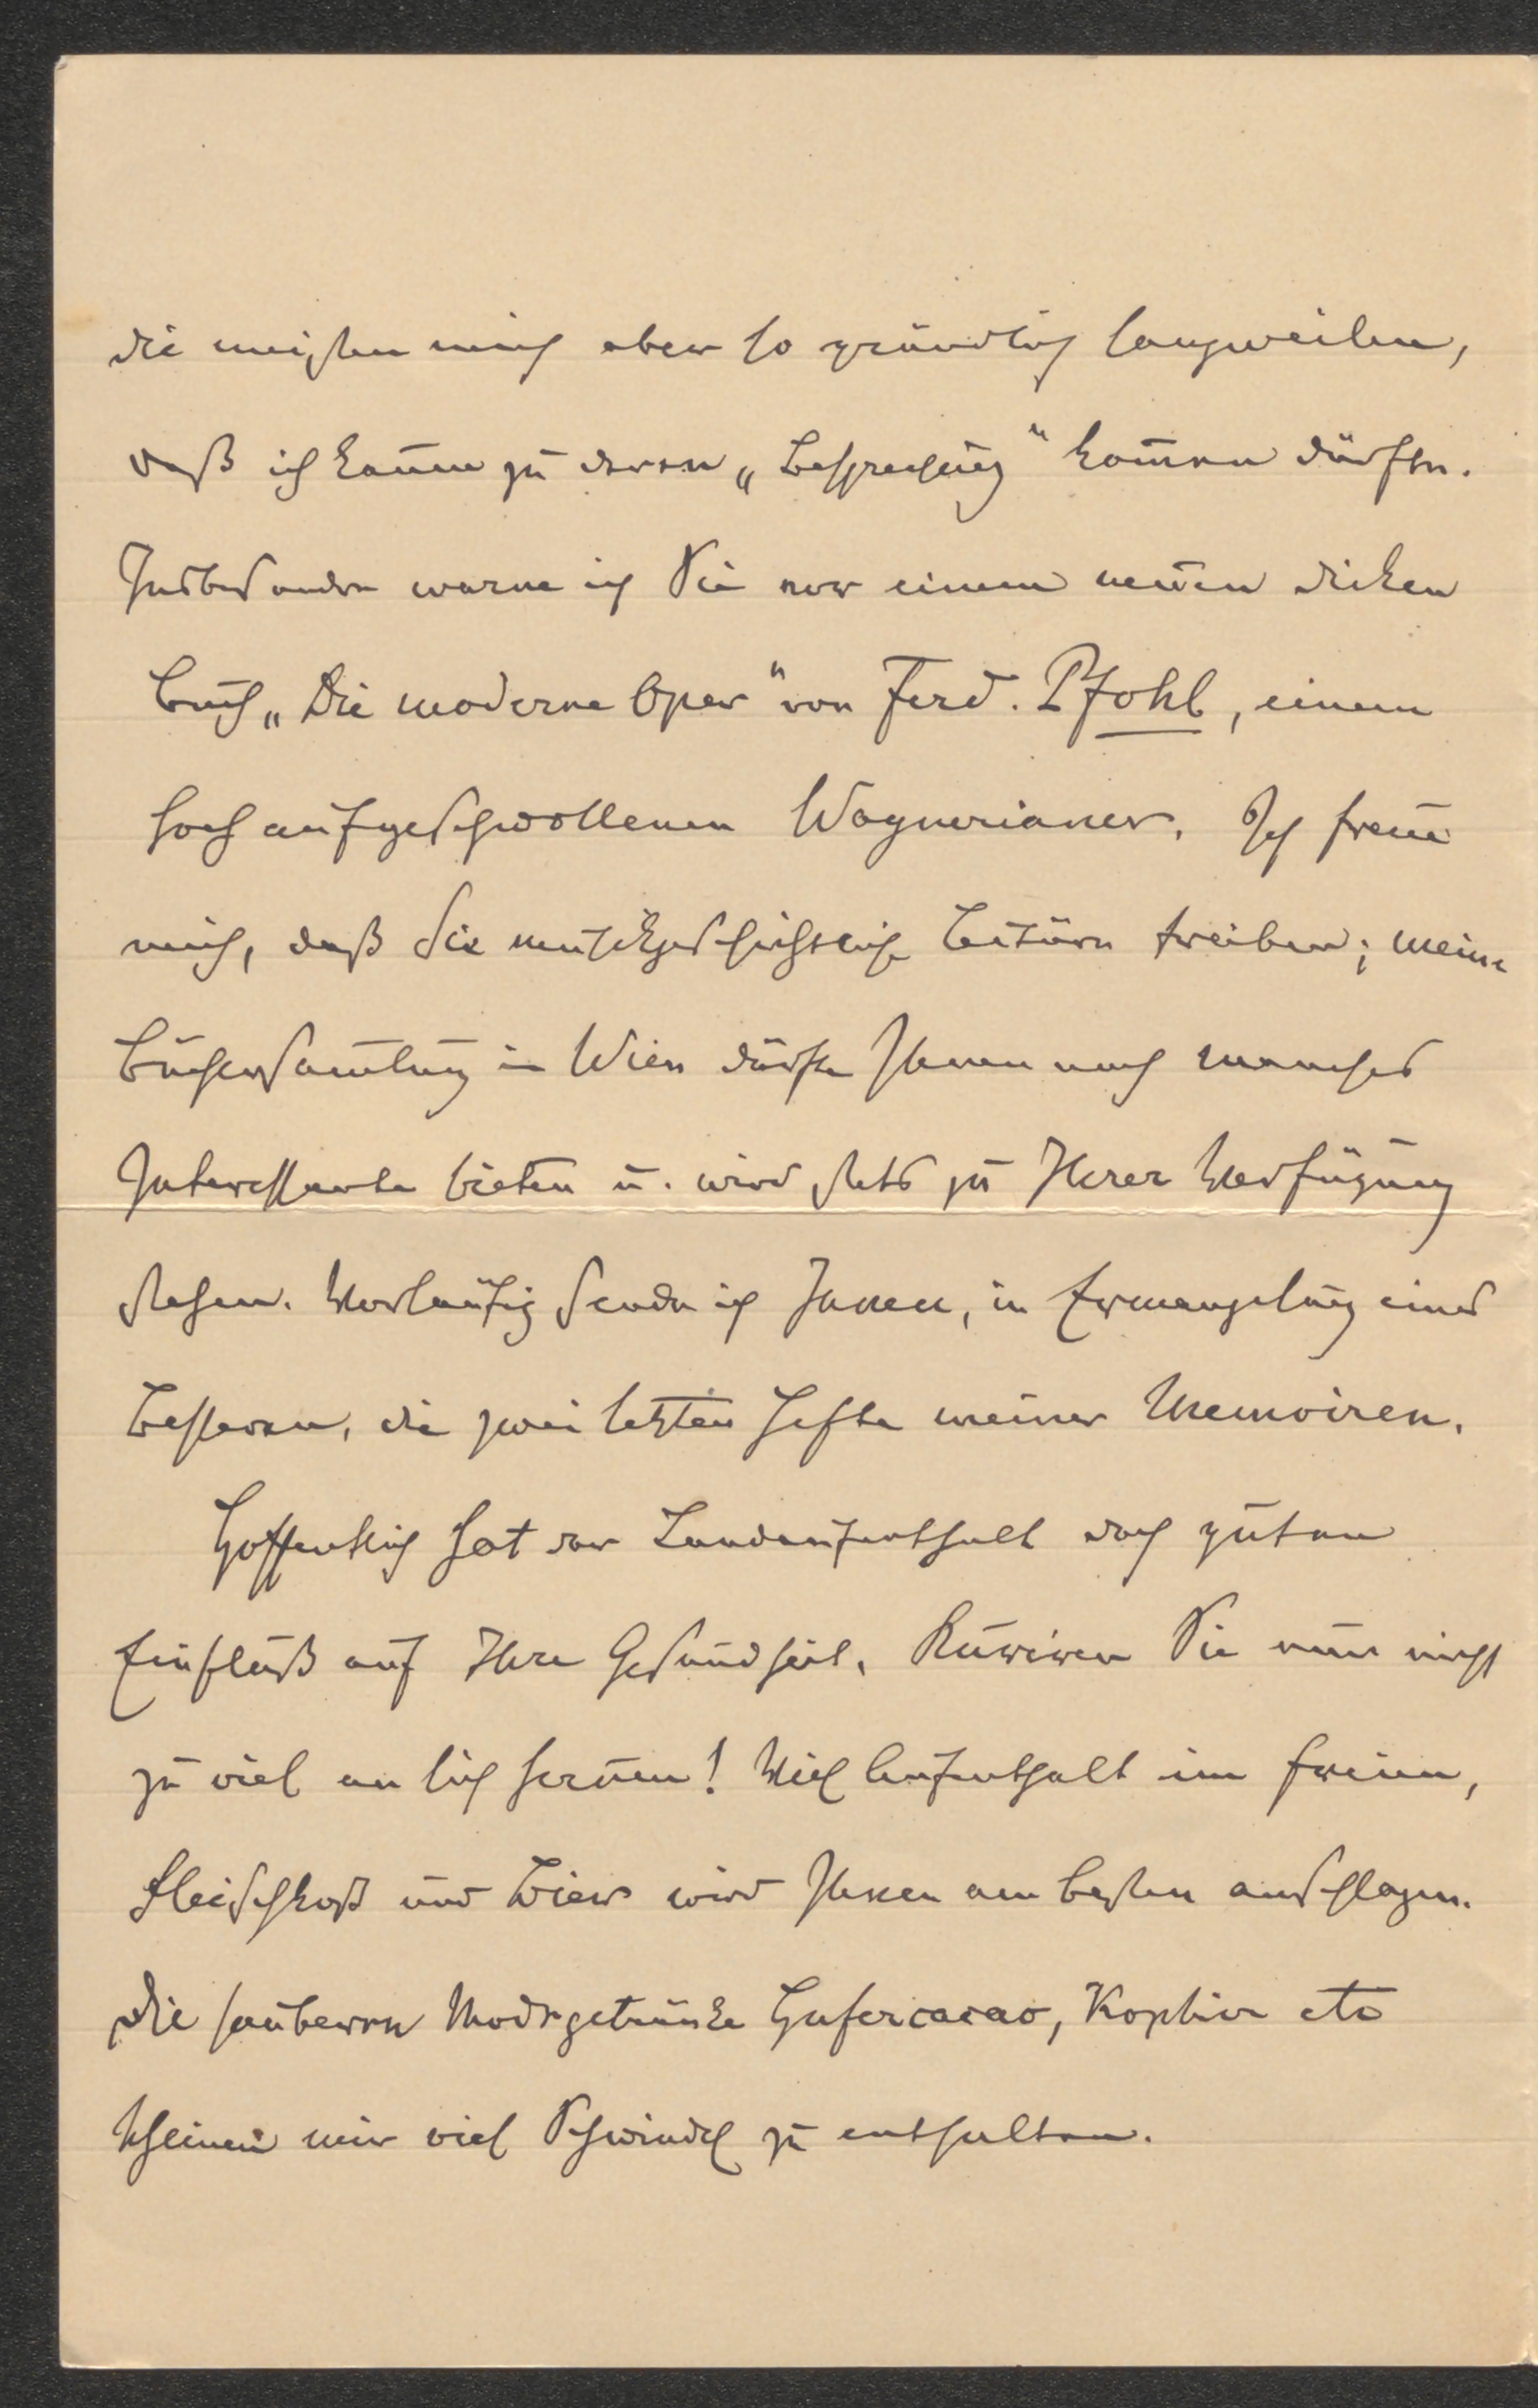 die meisten mich aber so gründlich langweilen,
daß ich kaum zu deren „Besprechung“ kom̅en dürfte.
Insbesondre warne ich Sie vor einem neuen dicken
Buch „Die moderne Oper“ von Ferd. Pfohl, einem
hoch aufgeschwollenen Wagnerianer. Ich freue
mich, daß Sie musikgeschichtliche Lektüre treiben; meine
Büchersam̅lung in Wien dürfte Ihnen noch manches
Interessante bieten u. wird stets zu Ihrer Verfügung
stehen. Vorläufig sende ich Ihnen, in Ermangelung eines
Besseren, die zwei letzten Hefte meiner Memoiren.
Hoffentlich hat der Landaufenthalt doch guten
Einfluß auf Ihre Gesundheit. Kuriren Sie nur nicht
zu viel an sich herum! Viel Aufenthalt im Freien,
Fleischkost und Bier wird Ihnen am besten anschlagen.
Die sauberen Modegetränke Hafercacao, etc
scheinen mir viel Schwindel zu enthalten.